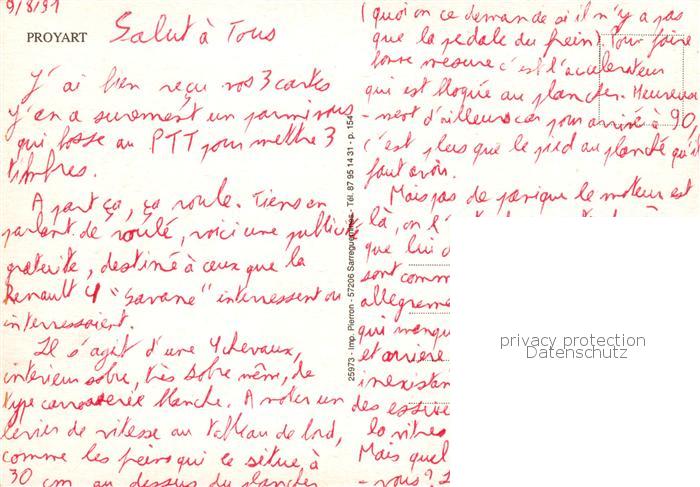 9/8/91
PROYART
Salut à Tous
J'ai bien reçu vos 3 cartes
y'en a surement un parmi vous
qui bosse au PTT pour mettre 3
timbres.
A part ça, ça roule. Tiens en
parlant de roulé, voici une publicité
gratuite, destiné à ceux que la
Renault 4 "Savane" interressent ou
interressaient.
Il s'agit d'une 4 chevaux,
intérieur sobre, très sobre même, de
type carrosserie blanche. A noter un
levier de vitesse au tableau de bord,
comme les freins qui se situe à
30 cm au dessus du plancher
25973 - Imp. Pierron - 57206 Sarreguemines - Tél. 87 95 14 31 - p. 154
(quoi on ce demande si il n'y a pas
que la pédale du frein). Pour faire
bonne mesure c'est l'accelerateur
qui est bloquée au plancher. Heureuse
-ment d'ailleurs car pour arrivé à 90,
c'est plus que le pied au planché qu'il
faut avoir.
Mais pas de panique le moteur est
là, on l'
que lui
sont comm
allegreme
qui manqu
et arriere
inexistan
des essuie
lo vitres
Mais quel
-vous?
privacy protection
Datenschutz